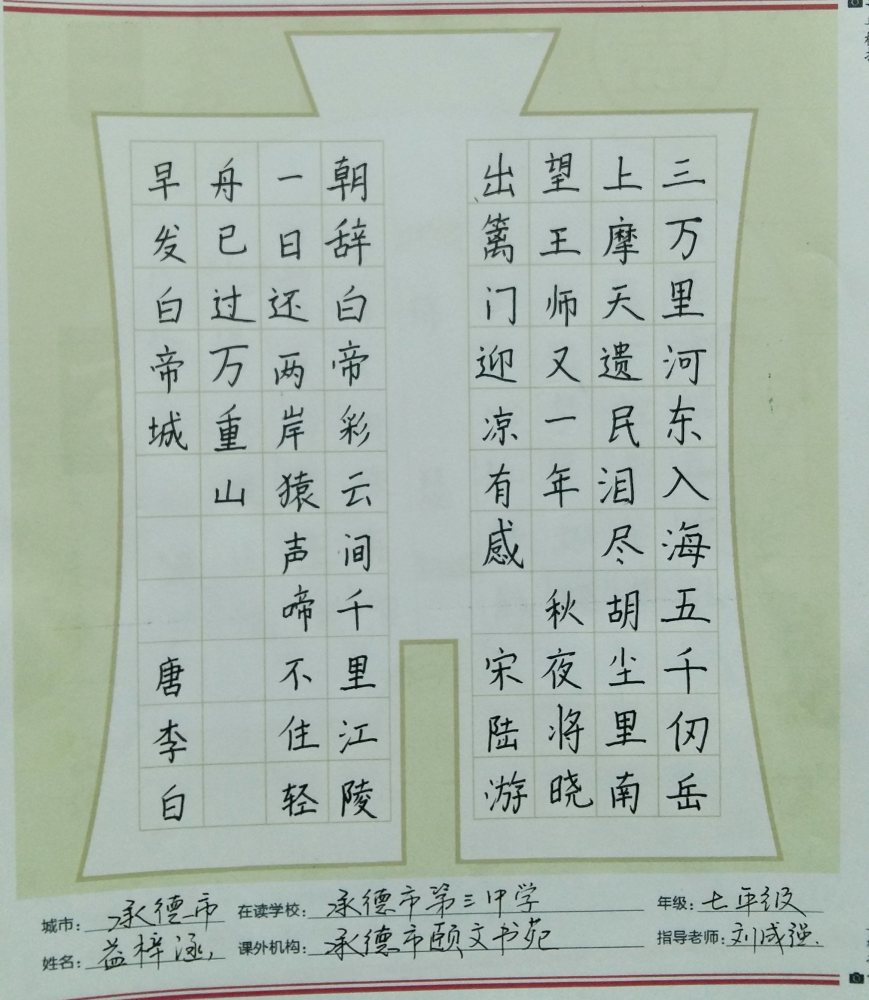 三万里河东入海五千仞岳
上摩天遗民泪尽胡尘里南
望王师又一年 秋夜将晓
出篱门迎凉有感 宋陆游
朝辞白帝彩云间千里江陵
一日还两岸猿声啼不住轻
舟已过万重山
早发白帝城 唐李白
城市: 承德市 在读学校: 承德市第三中学 年级: 七年级
姓名: 益梓涵 课外机构: 承德市颐文书苑 指导老师: 刘成强